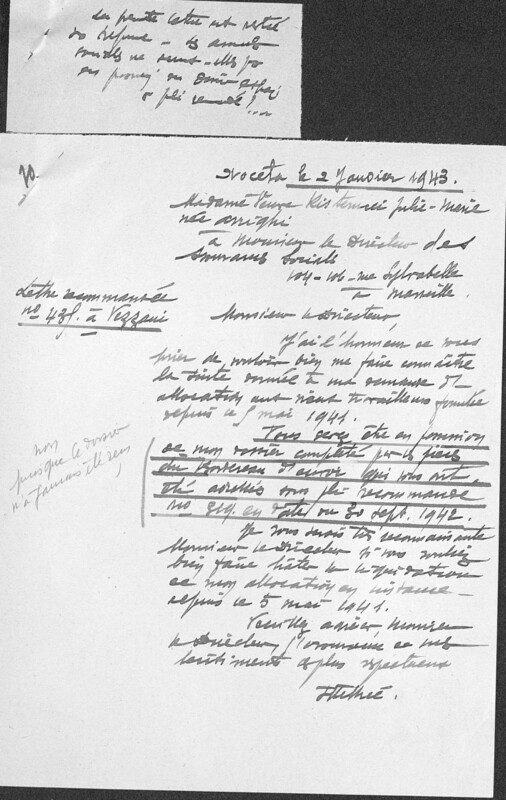 la présente lettre est restée
sans réponse - les assurances
sociales ne sont-elles pas
en
à pli recommandé !
20.
Noceta le 2 Janvier 1943.
Madame Veuve Ristorcei Julie-Marie
née Arrighi
à Monsieur le Directeur des
Assurances Sociales
104-106 - rue Sylvabelle
à Marseille.
Lettre recommandée
no 431. à Vezzani
Monsieur le Directeur,
J'ai l'honneur de vous
prier de vouloir bien me faire connaître
la suite donnée à ma demande d'
allocation aux vieux travailleurs formulée
depuis le 5 mai 1941.
Vous devez être en possession
de mon dossier complété par les pièces
du Bordereau d'envoi qui vous ont
été adressées sous pli recommandé
no 819. en date du 30 sept. 1942.
non
puisque le dossier
n'a jamais été reçu !
Je vous serais très reconnaissante
Monsieur le Directeur si vous vouliez
bien faire hâter la liquidation
de mon allocation en instance
depuis le 5 mai 1941.
Veuillez agréer, Monsieur
le Directeur, l'assurance de mes
sentiments les plus respectueux